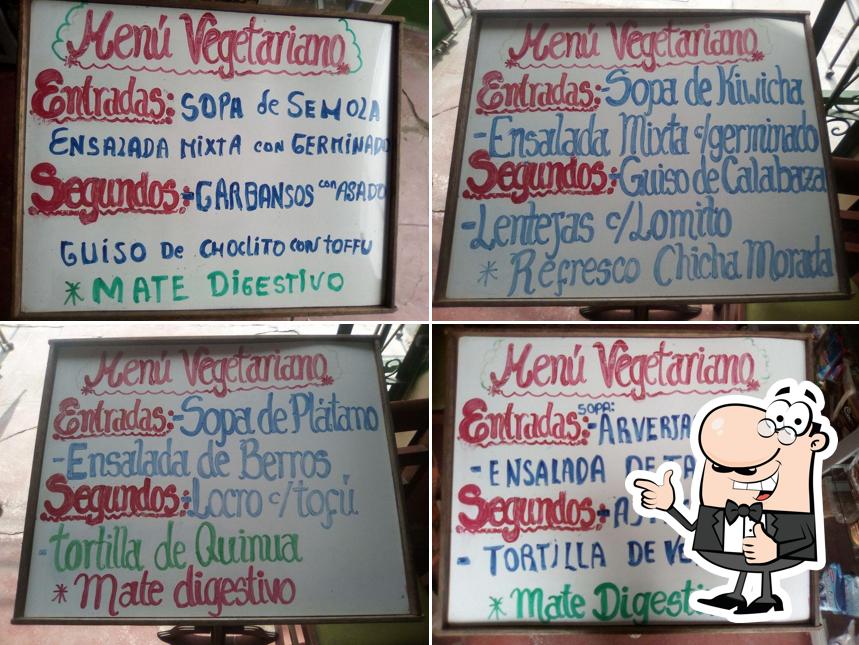 Menú Vegetariano
Entradas: SOPA de SEMOLA
ENSALADA MIXTA con GERMINADO
Segundos:-GARBANSOS con ASADO
GUISO De CHOCLITO CON TOFFU
* MATE DIGESTIVO
Menú Vegetariano
Entradas:-Sopa de Kiwicha
-Ensalada Mixta c/germinado
Segundos:-Guiso de Calabaza
-Lentejas c/Lomito
* Refresco Chicha Morada
Menú Vegetariano
Entradas:-Sopa de Plátano
-Ensalada de Berros
Segundos:-Locro c/tofú
-tortilla de Quinua
* Mate digestivo
Menú Vegetariano
SOPA:
Entradas:-ARVERJA
- ENSALADA DE
Segundos
- TORTILLA DE
* Mate